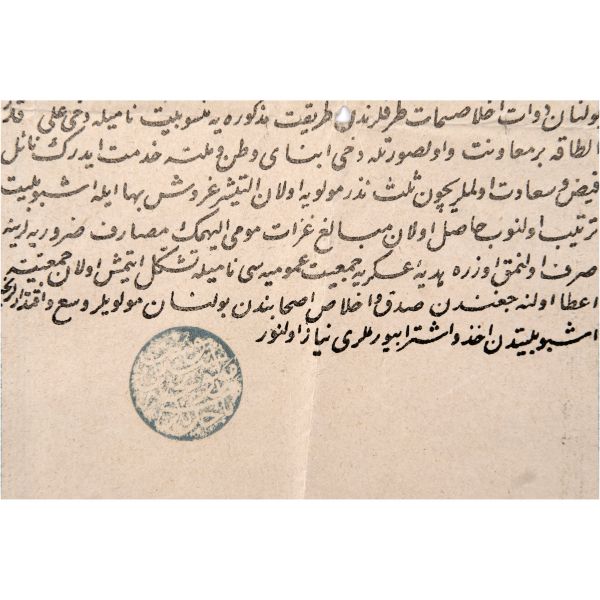 بولنان ذوات اخلاصسمات طرفلرندن طریقت مذکوره یه منسوبیت نامیله دخی علی قدر
الطاقه بر معاونت واولصورتله دخی ابنای وطن و ملته خدمت ایدرک نائل
فیض و سعادت اولملریچون ثلث نذر مولویه اولان التیشر غروش بها ایله اشبو بلیت
ترتیب اولنوب حاصل اولان مبالغ غزات مومی الیهمک مصارف ضروریه لرینه
صرف اولنمق اوزره هدیه عسکریه جمعیت عمومیه سی نامیله تشکل ایتمش اولان جمعیته
اعطا اولنه جغندن صدق و اخلاص اصحابندن بولنان مولویلر وسع و اقتدارلرینجه
اشبو بلیتدن اخذ و اشترا بیورملری نیاز اولنور